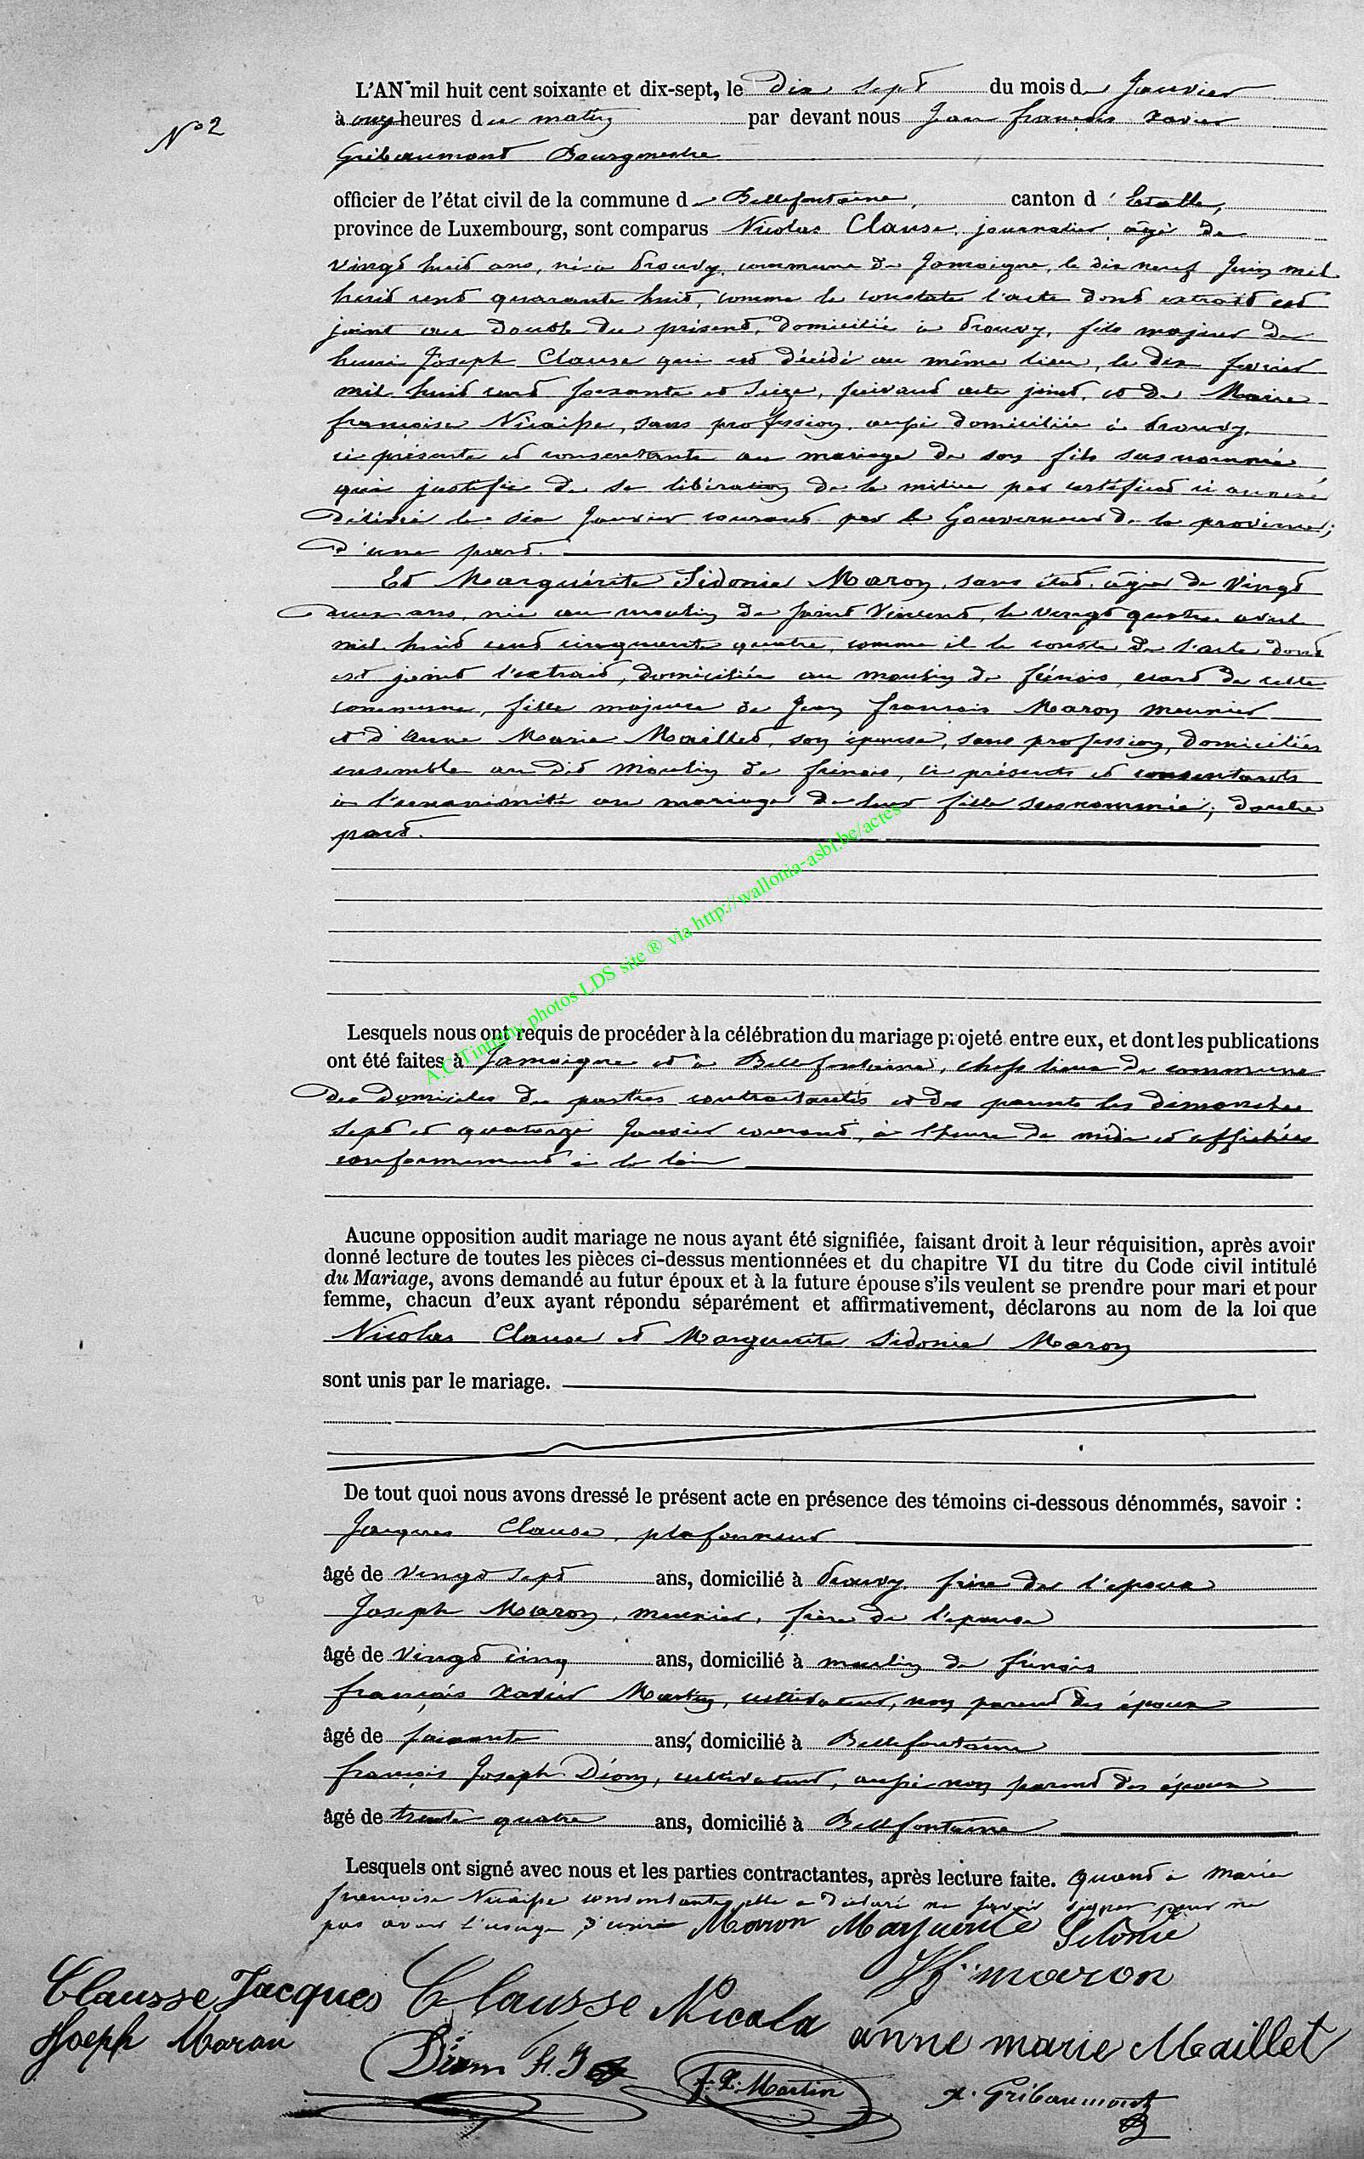 N° 2
L'AN mil huit cent soixante et dix-sept, le dix sept du mois de Janvier
à onze heures du matin par devant nous Jean françois xavier
Gribaumont Bourgmestre
officier de l'état civil de la commune de Bellefontaine, canton d'Etalle,
province de Luxembourg, sont comparus Nicolas Clausse, journalier, âgé de
vingt huit ans, né à Prouvy, commune de Jamoigne, le dix neuf Juin mil
huit cent quarante huit, comme le constate l'acte dont extrait est
joint au double du présent, domicilié à Prouvy, fils majeur de
henri Joseph Clausse qui est décédé au même lieu, le dix fevrier
mil huit cent soixante et seize, suivant acte joint, et de Marie
françoise Nicaisse, sans profession, aussi domiciliée à Prouvy,
ci présente et consentante au mariage de son fils susnommé
qui justifie de sa libération de la milice par certificat ci annexé
délivré le six Janvier courant par le Gouverneur de la province;
d'une part.
Et Marguérite Sidonie Maron, sans état, âgée de vingt
deux ans, née au moulin de Saint Vincent, le vingt quatre avril
mil huit cent cinquante quatre, comme il le conste de l'acte dont
est joint l'extrait, domiciliée au moulin de frénois, écart de cette
commune, fille majeure de Jean françois Maron meunier
et d'Anne Marie Maillet, son épouse, sans profession, domiciliés
ensemble au dit moulin de frénois, ci présents et consentants
à l'unanimité au mariage de leur fille susnommée; d'autre
part.
A.C. Tintigny photos LDS site ® via http://wallonia-asbl.be/actes
Lesquels nous ont requis de procéder à la célébration du mariage projeté entre eux, et dont les publications
ont été faites à Jamoigne et à Bellefontaine, chefs lieux de commune
des domiciles des parties contractantes et des parents les dimanches
sept et quatorze Janvier courant, à l'heure de midi et affichées
conformement à la loi
Aucune opposition audit mariage ne nous ayant été signifiée, faisant droit à leur réquisition, après avoir
donné lecture de toutes les pièces ci-dessus mentionnées et du chapitre VI du titre du Code civil intitulé
du Mariage, avons demandé au futur époux et à la future épouse s'ils veulent se prendre pour mari et pour
femme, chacun d'eux ayant répondu séparément et affirmativement, déclarons au nom de la loi que
Nicolas Clausse et Marguerite Sidonie Maron
sont unis par le mariage.
De tout quoi nous avons dressé le présent acte en présence des témoins ci-dessous dénommés, savoir :
Jacques Clausse, plafonneur
âgé de vingt sept ans, domicilié à Prouvy, frère de l'époux
Joseph Maron, meunier, frère de l'epouse
âgé de vingt cinq ans, domicilié à moulin de frénois
françois xavier Martin, cultivateur, non parent des époux
âgé de soixante ans, domicilié à Bellefontaine
françois Joseph Diom, cultivateur, aussi non parent des époux
âgé de trente quatre ans, domicilié à Bellefontaine
Lesquels ont signé avec nous et les parties contractantes, après lecture faite. quant à Marie
françoise Nicaisse consentante, elle a déclaré ne savoir signer pour ne
pas avoir l'usage d'écrire Maron Marguerite Sidonie
Jf. maron
Clausse Jacques Clausse Nicola anne marie Maillet
Joseph Maron
Diom F. J
F. X. Martin
x. Gribaumont